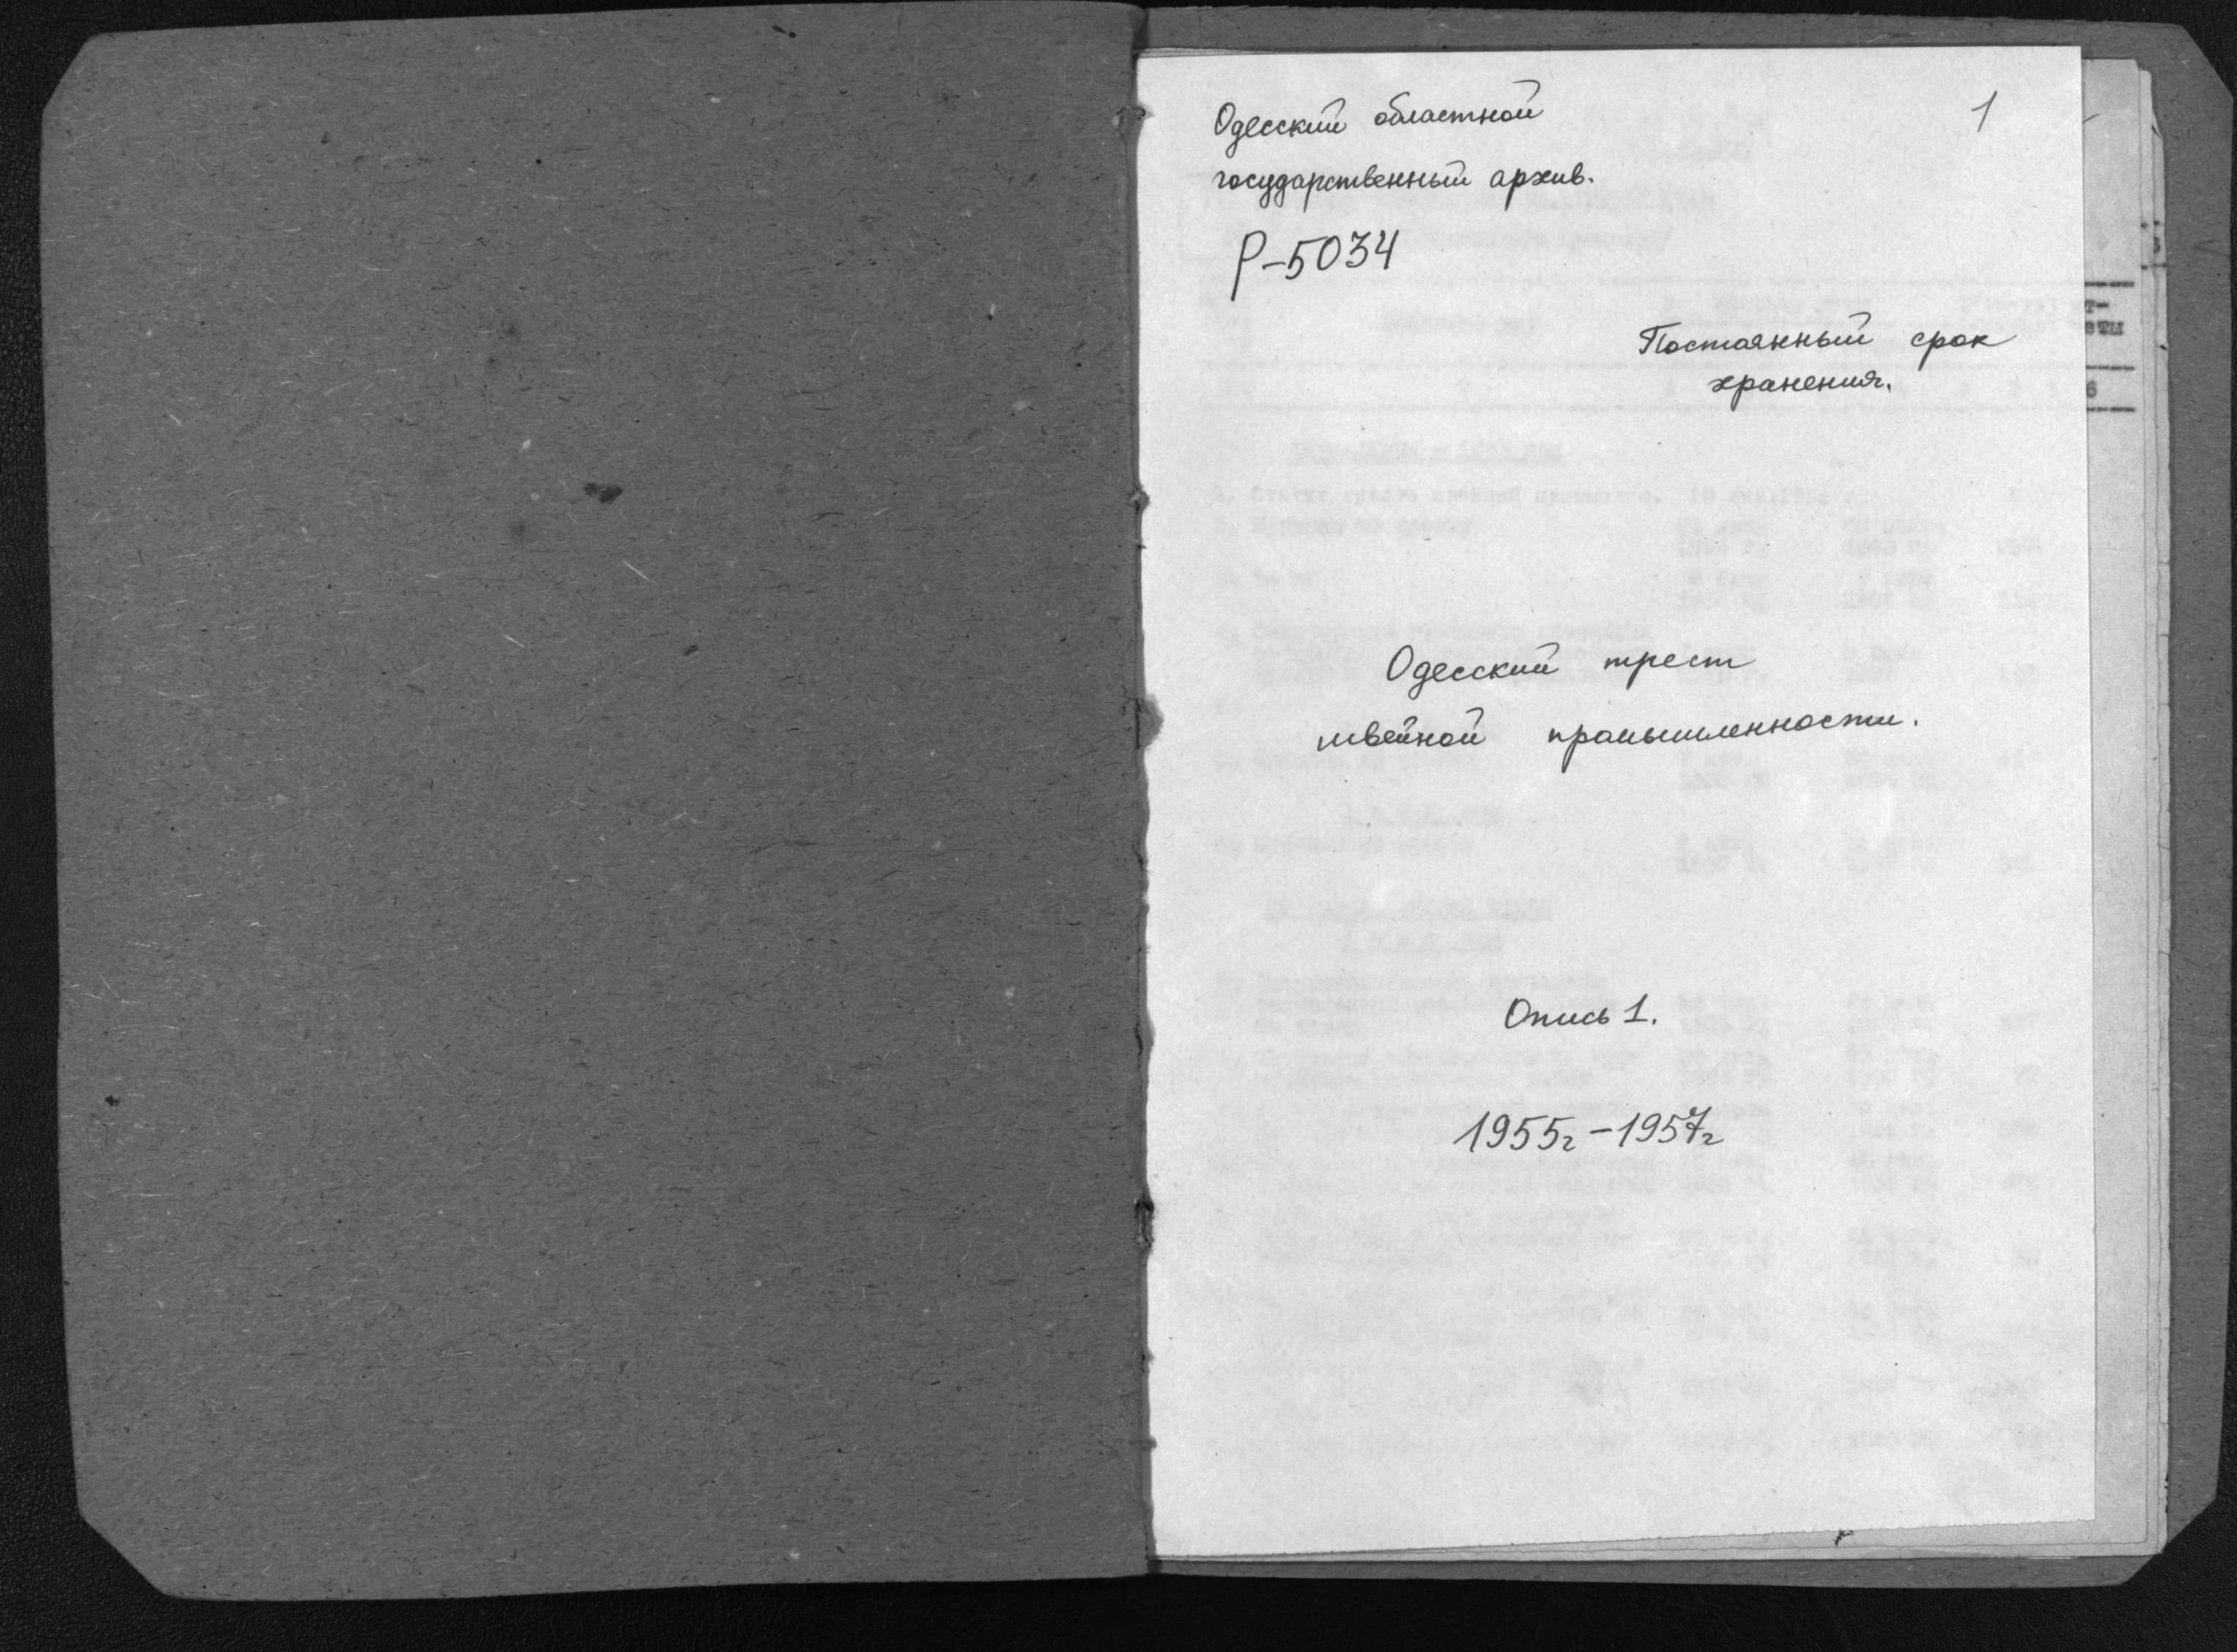 1
Одесский областной
государственный архив.
Р-5034
Постоянный срок
хранения.
Одесский трест
швейной промышленности.
Опись 1.
1955г - 1957г